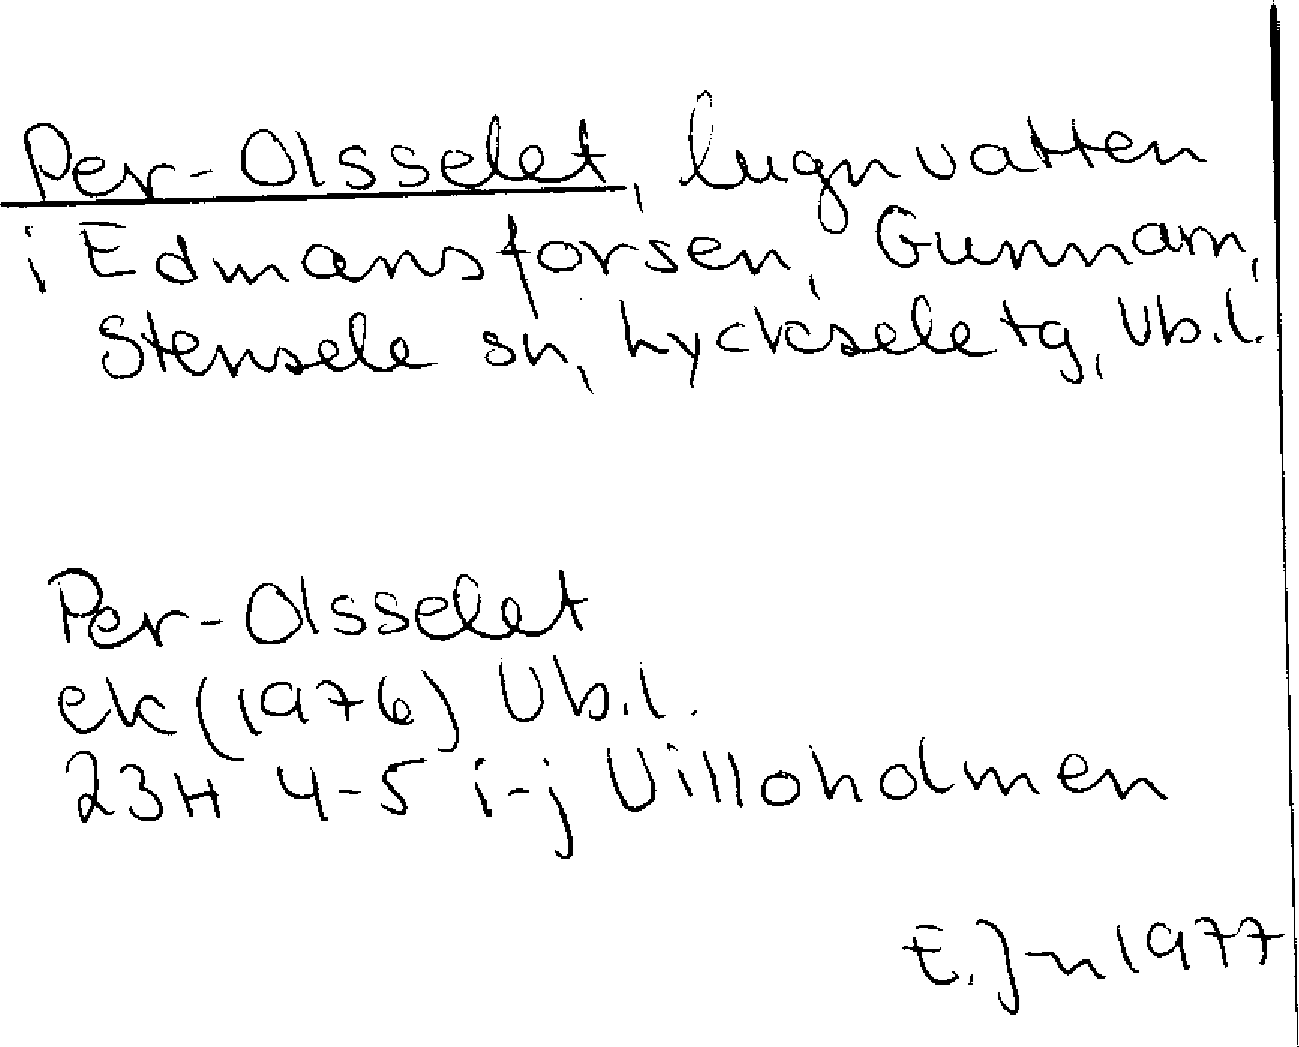 Per-Olsselet, lugnvatten
i Edmansforsen, Gunnarn,
Stensele sn, Lycksele tg, Vb.l.
Per-Olsselet
ek (1976) Vb.l.
23H 4-5 i-j Villoholmen
E. J-n 1977